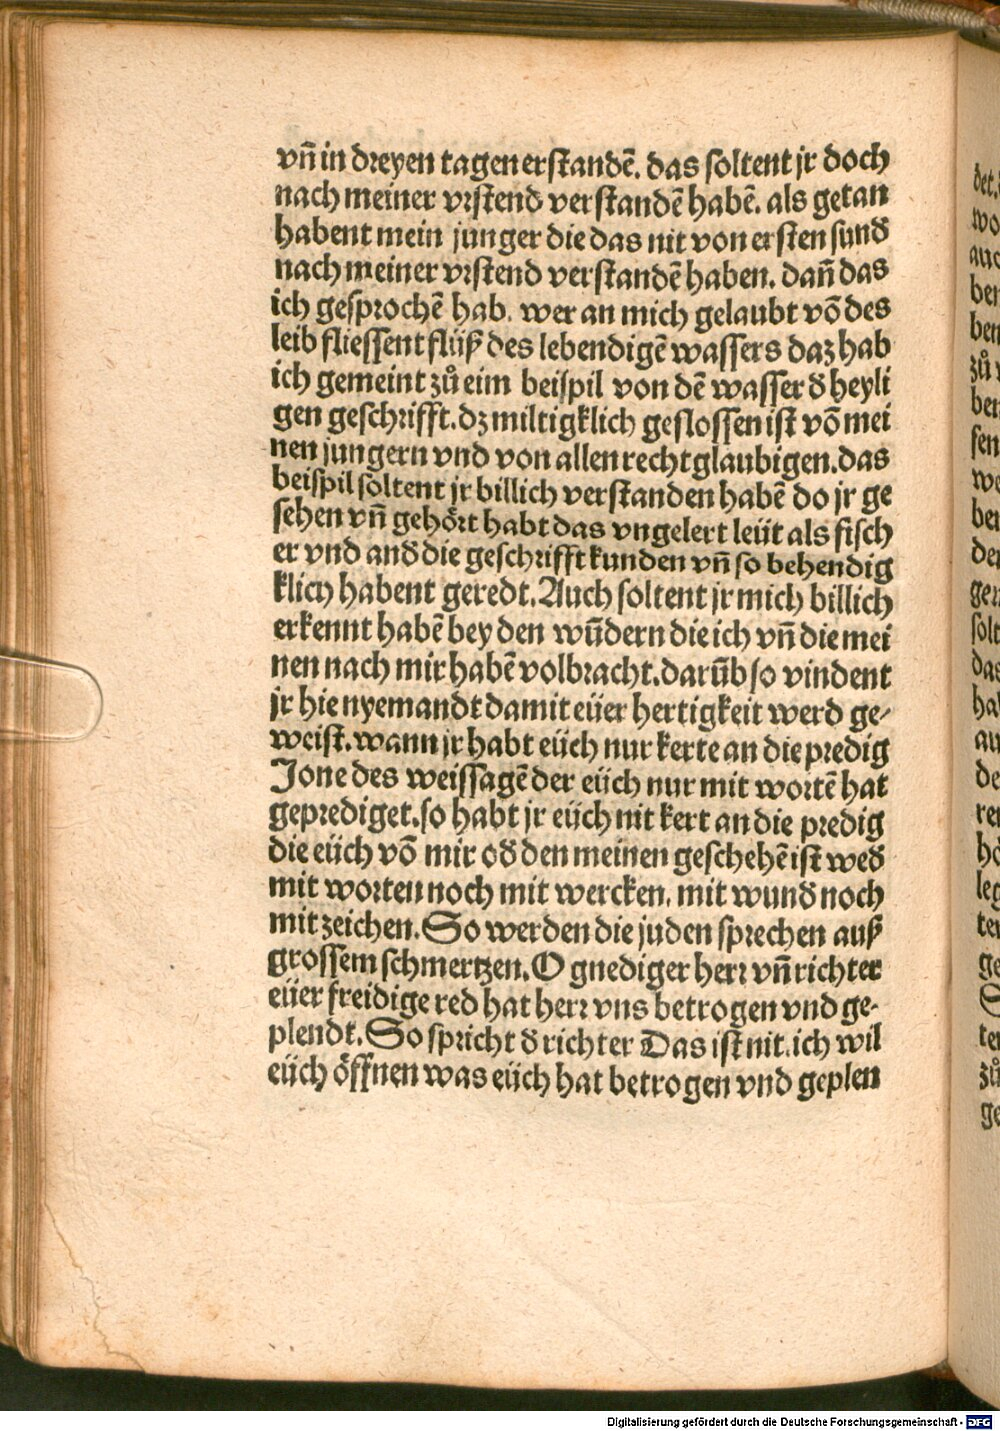 vñ in dreyen tagen erstandē. das soltent jr doch
nach meiner vrstend verstandē habē. als getan
habent mein junger die das nit von ersten sund
nach meiner vrstend verstandē haben. dañ das
ich gesprochē hab. wer an mich gelaubt võ des
leib fliessent flüß des lebendigē wassers daz hab
ich gemeint zů eim beispil von dē wasser đ heyli
gen geschrifft. dz miltigklich geflossen ist võ mei
nen jungern vnd von allen rechtglaubigen. das
beispil soltent jr billich verstanden habē do jr ge
sehen vñ gehört habt das vngelert leüt als fisch
er vnd anđ die geschrifft kunden vñ so behendig
klich habent geredt. Auch soltent jr mich billich
erkennt habē bey den wūdern die ich vñ die mei
nen nach mir habē volbracht. darūb so vindent
jr hie nyemandt damit eüer hertigkeit werd ge⸗
weist. wann jr habt eüch nur kerte an die predig
Jone des weissagē der eüch nur mit wortē hat
geprediget. so habt jr eüch nit kert an die predig
die eüch võ mir ođ den meinen geschehē ist weđ
mit worten noch mit wercken, mit wunđ noch
mit zeichen. So werden die juden sprechen auß
grossem schmertzen. O gnediger herr vñ richter
eüer freidige red hat herr vns betrogen vnd ge⸗
plendt. So spricht đ richter Das ist nit. ich wil
eüch öffnen was eüch hat betrogen vnd geplen
det.
wo
auc
ben
ben
zů
ben
sen
we
ben
der
gen
solt
das
ha
au
de
ren
hö
leg
ten
ge
S
ten
zů
ge
Digitalisierung gefördert durch die Deutsche Forschungsgemeinschaft - DFG